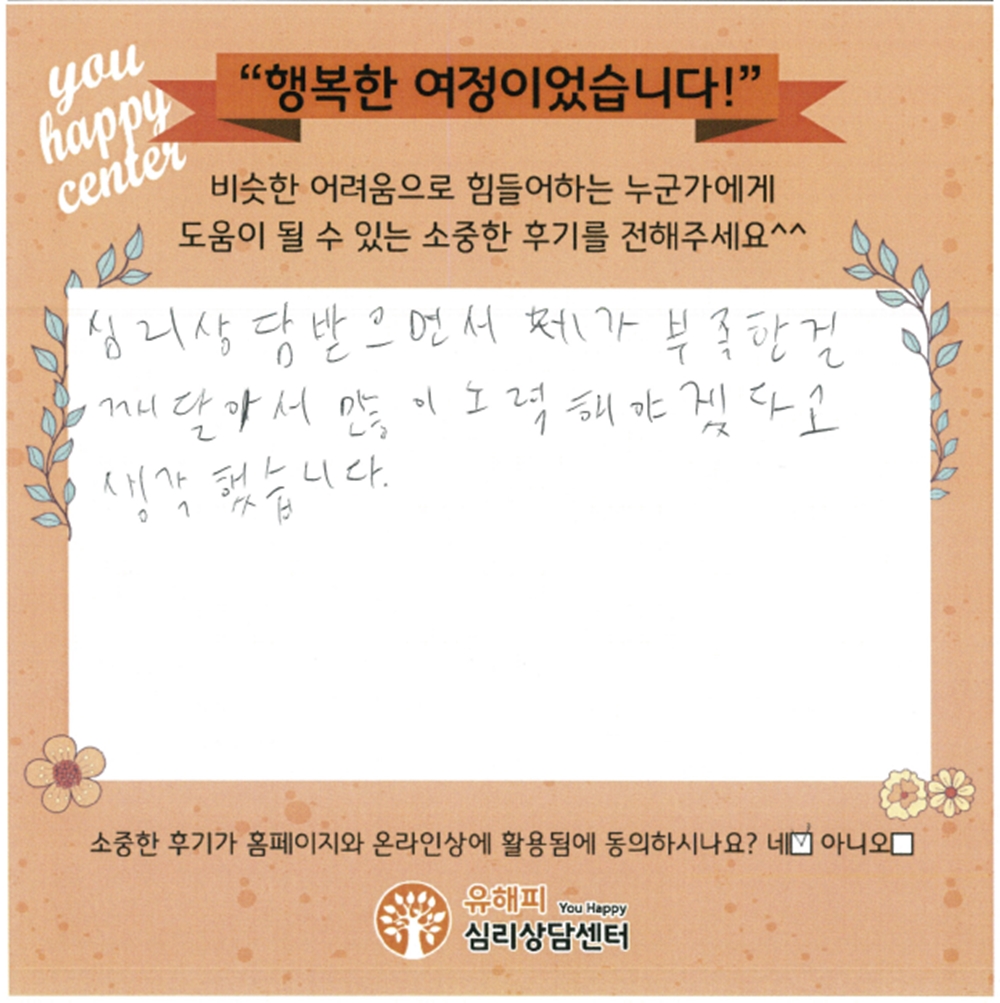 you
happy
center
“행복한 여정이었습니다!”
비슷한 어려움으로 힘들어하는 누군가에게
도움이 될 수 있는 소중한 후기를 전해주세요^^
심리상담받으면서 제가 부족한걸
깨달아서 많이 노력해야겠다고
생각했습니다.
소중한 후기가 홈페이지와 온라인상에 활용됨에 동의하시나요? 네☑ 아니오☐
유해피 You Happy
심리상담센터